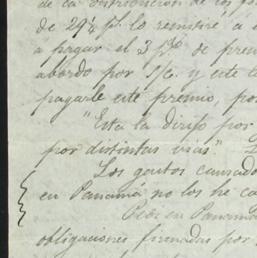 de la disposicion de los
de 29¼ p% le remitiré á
a pagar el 3 p% de prem
abordo por S/C. y este
pagarle este premio, por
"Esta la dirijo por
por distintas vias."
Los gastos causados
en Panamá no los he ca
en Panamá
obligaciones firmadas por